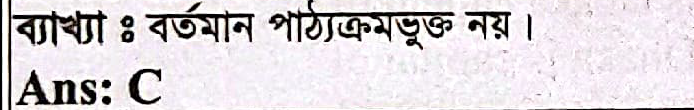 ব্যাখ্যা ঃ বর্তমান পাঠ্যক্রমভুক্ত নয়।
Ans: C